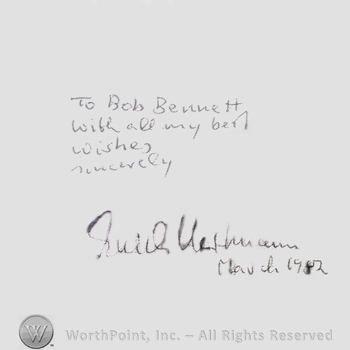 To Bob Bennett
with all my best
wishes,
sincerely
March 1982
W WorthPoint, Inc. – All Rights Reserved